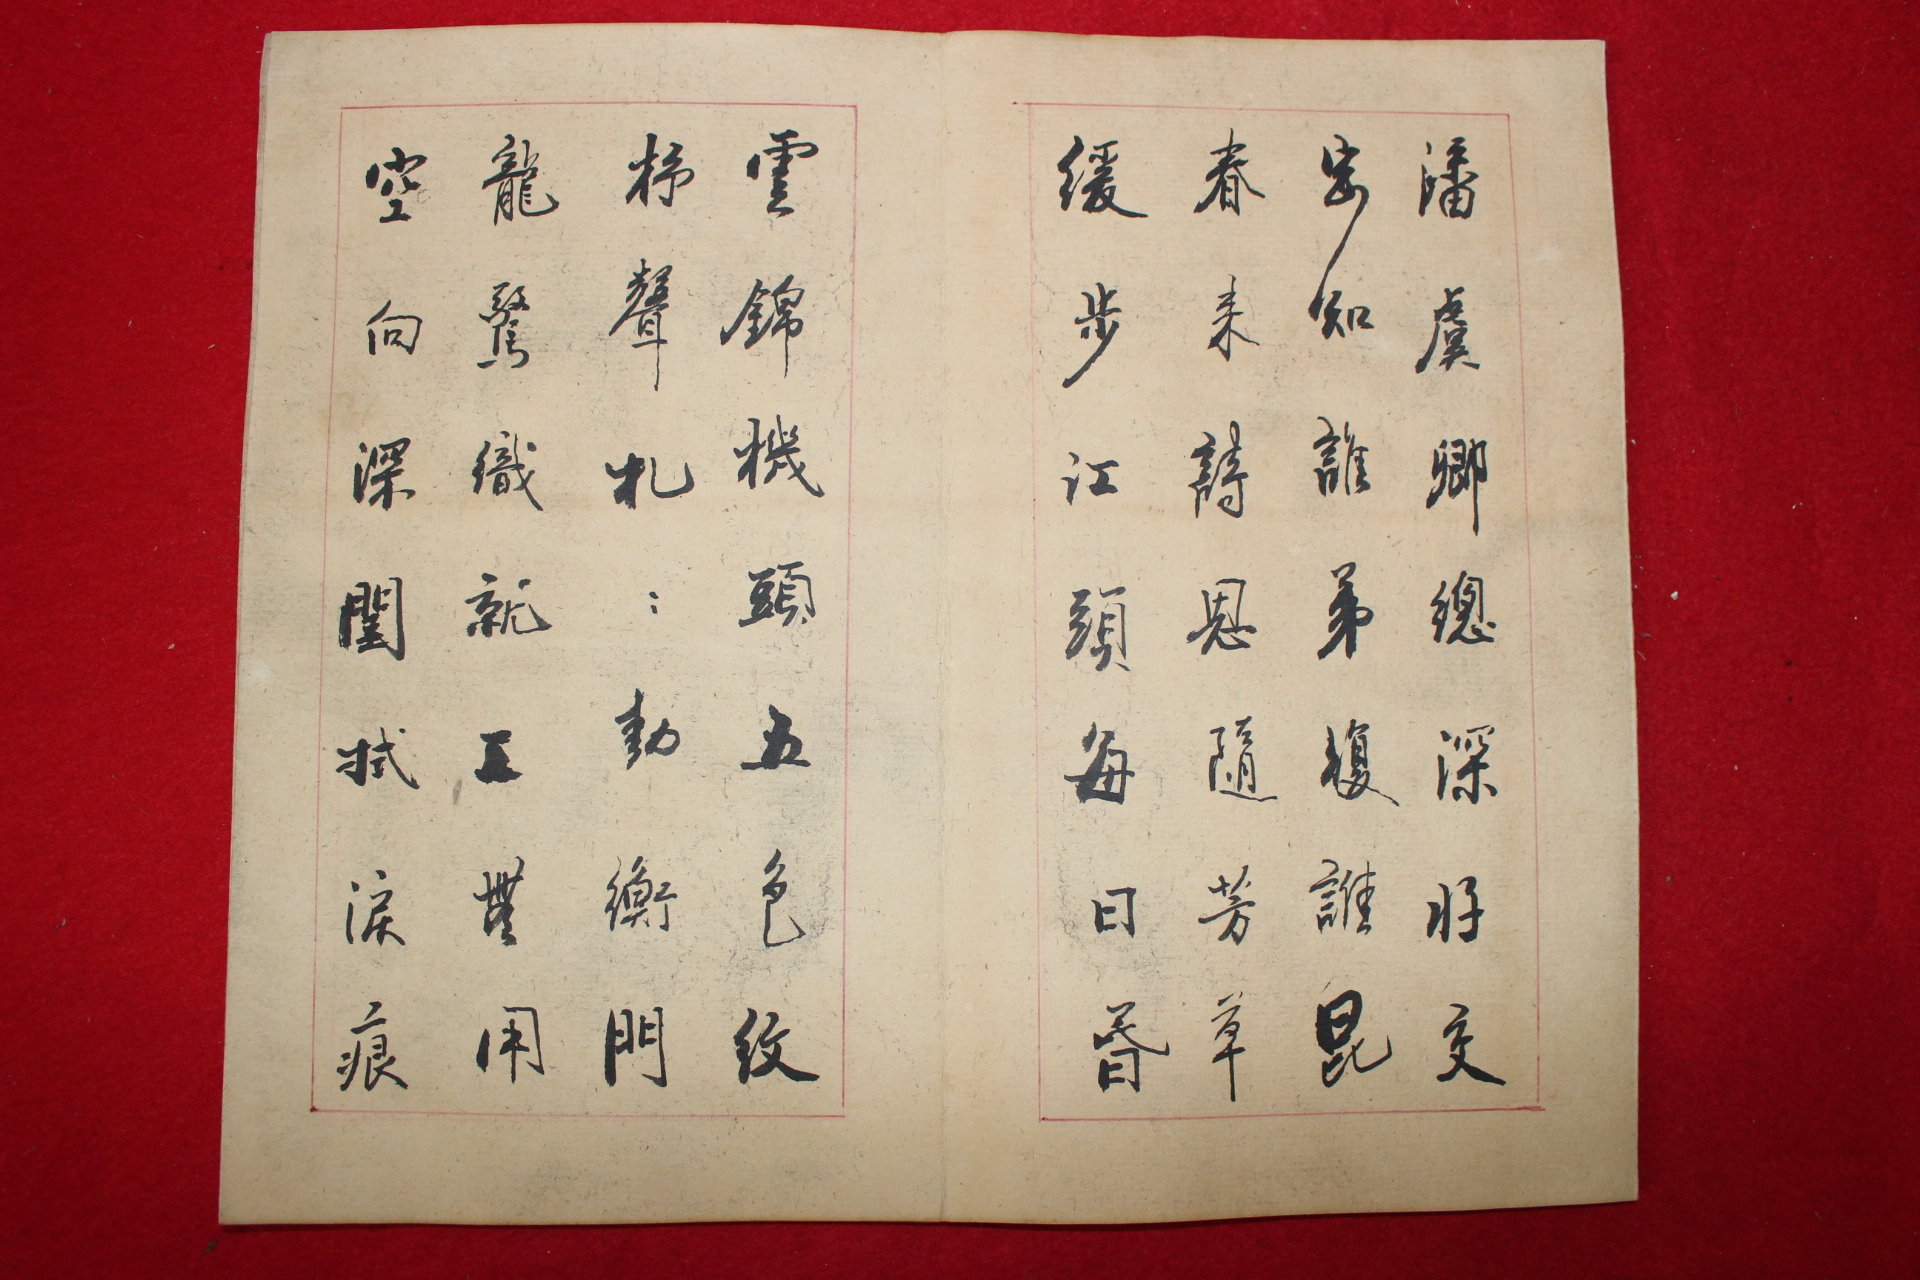 潘虞卿總深好交
安知誰弟複誰昆
春来詩思隨芳草
緩步江頭每日昏
雲錦機頭五色紋
杼聲札〻動衡門
龍鸞織就工無用
空向深閨拭淚痕